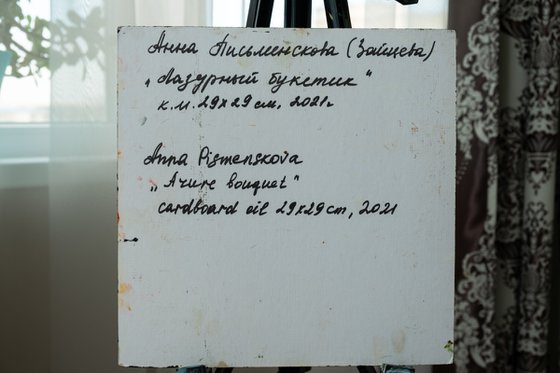 Анна Письменскова (Зайцева)
„Лазурный букетик"
к.м. 29х29 см, 2021г
Anna Pismenskova
„Azure bouquet"
cardboard oil 29x29cm, 2021